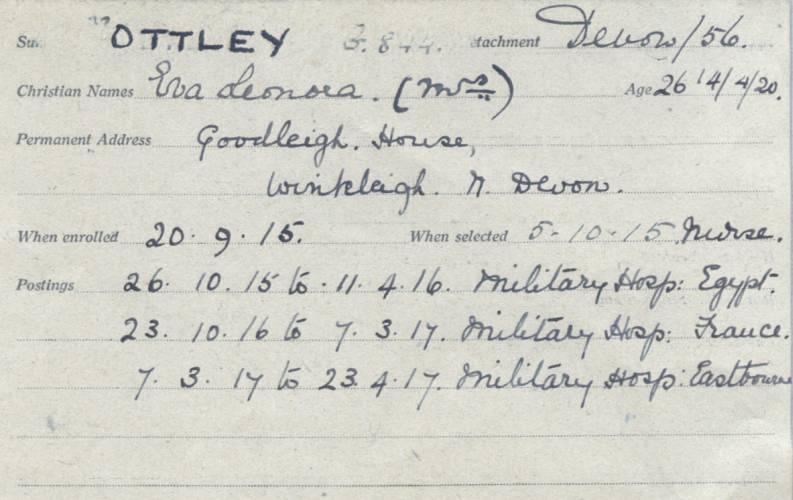 Su. OTTLEY G.844. etachment Devon/56.
Christian Names Eva Leonora. (Mrs) Age 26 14/4/20.
Permanent Address Goodleigh. House,
Winkleigh. N. Devon.
When enrolled 20. 9. 15. When selected 5-10-15 Nurse.
Postings 26. 10. 15 to 11. 4. 16. Military Hosp: Egypt.
23. 10. 16 to 7. 3. 17. Military Hosp: France.
7. 3. 17 to 23. 4. 17. Military Hosp: Eastbourne